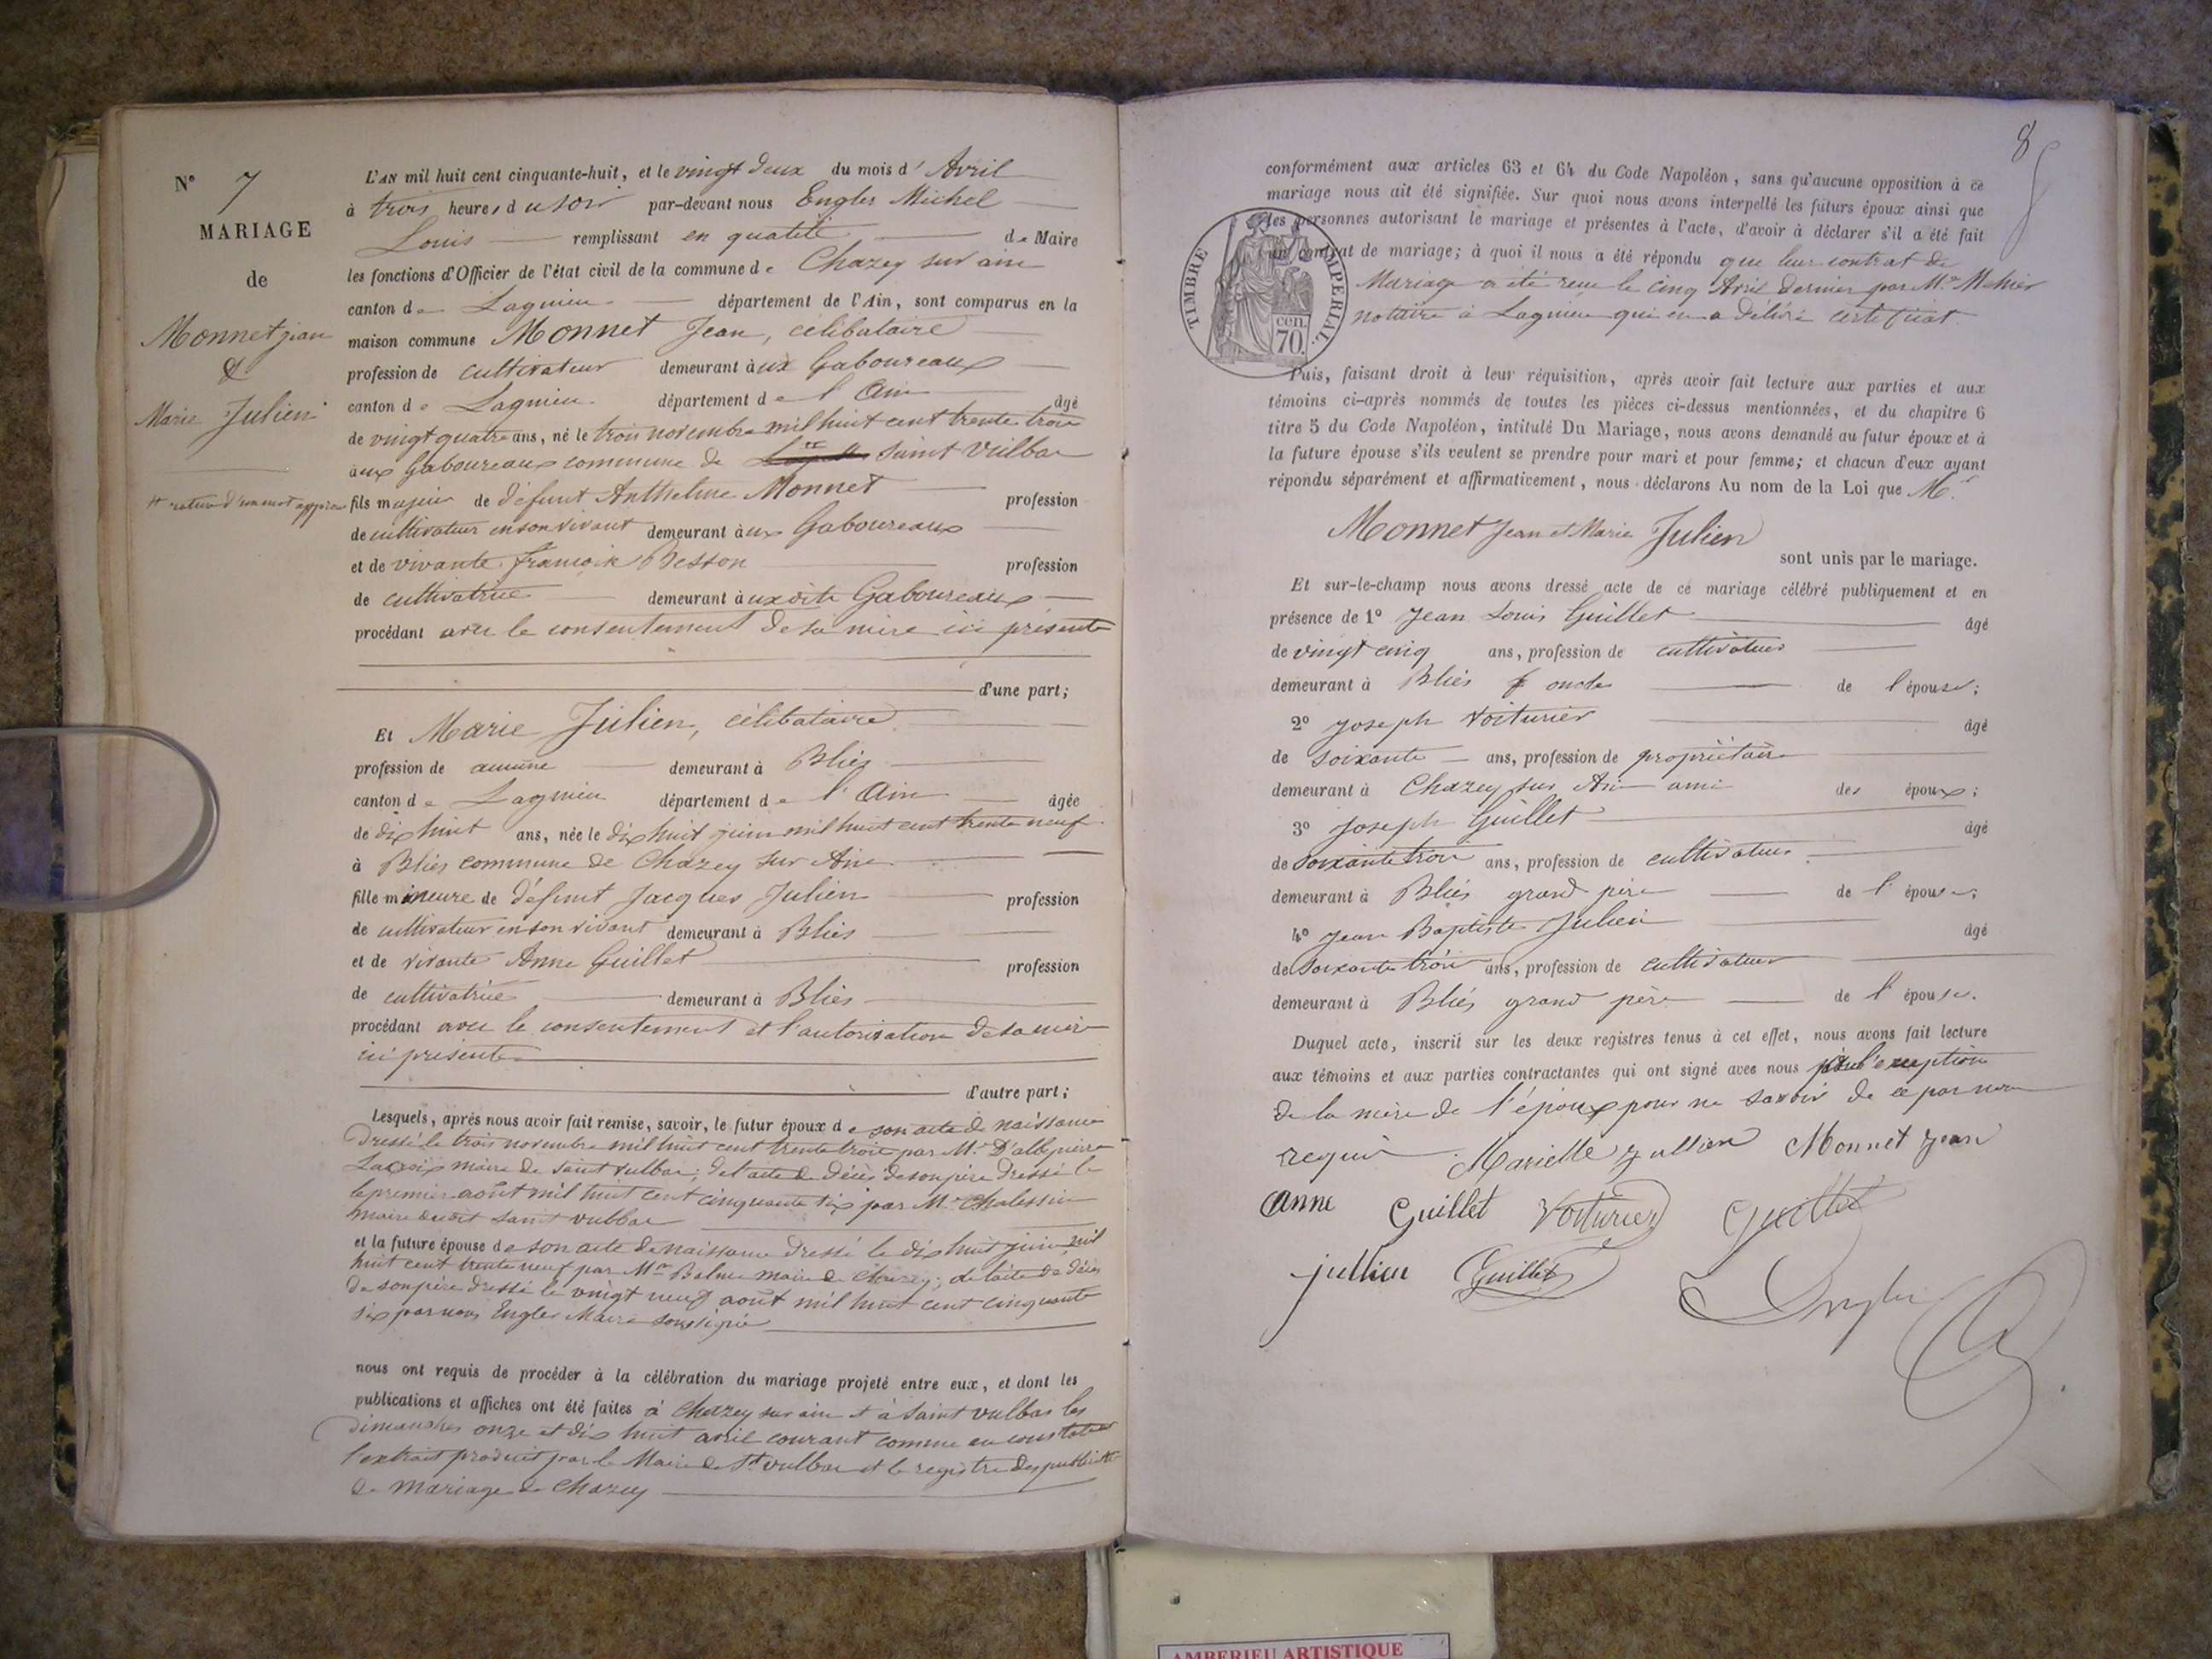 N° 7
MARIAGE
de
Monnet jean
&
Marie Julien
L'AN mil huit cent cinquante-huit, et le vingt deux du mois d' Avril
à trois heures du soir par-devant nous Engler Michel
Louis remplissant en qualité de Maire
les fonctions d'Officier de l'état civil de la commune de Chazey sur ain
canton de Lagnieu département de l'Ain, sont comparus en la
maison commune Monnet Jean, célibataire
profession de cultivateur demeurant aux Gaboureaux
canton de Lagnieu département de l'Ain âgé
de vingt quatre ans, né le trois novembre mil huit cent trente trois
aux Gaboureaux commune de saint Vulbas
fils majeur de défunt Anthelme Monnet profession
de cultivateur en son vivant demeurant aux Gaboureaux
et de vivante Besson profession
de cultivatrice demeurant aux dits Gaboureaux
procédant avec le consentement de sa mère ici présente
d'une part;
Et Marie Julien, célibataire
profession de aucune demeurant à Bliés
canton de Lagnieu département de l'Ain âgée
de dix huit ans, née le dix huit juin mil huit cent trente neuf
à Bliés commune de Chazey sur Ain
fille mineure de défunt Jacques Julien profession
de cultivateur en son vivant demeurant à Bliés
et de vivante Anne Guillet profession
de cultivatrice demeurant à Bliés
procédant avec le consentement et l'autorisation de sa mère
ici présente
d'autre part;
Lesquels, après nous avoir fait remise, savoir, le futur époux de son acte de naissance
dressé le trois novembre mil huit cent trente trois par Mr
maire de saint vulbas; de l'acte de décès de son père dressé le
premier août mil huit cent cinquante six par Mr
maire dudit saint vulbas
et la future épouse de son acte de naissance dressé le dix huit juin mil
huit cent trente neuf par Mr maire de Chazey; de l'acte de décès
de son père dressé le vingt neuf août mil huit cent cinquante
six par nous Engler Maire soussigné
nous ont requis de procéder à la célébration du mariage projeté entre eux, et dont les
publications et affiches ont été faites à Chazey sur ain et à saint vulbas les
dimanches onze et dix huit avril courant comme en
l'extrait produit par le Maire de St vulbas et le registre des
de mariage de Chazey
8
conformément aux articles 63 et 64 du Code Napoléon, sans qu'aucune opposition à ce
mariage nous ait été signifiée. Sur quoi nous avons interpellé les futurs époux ainsi que
les personnes autorisant le mariage et présentes à l'acte, d'avoir à déclarer s'il a été fait
un contrat de mariage; à quoi il nous a été répondu que leur contrat de
Mariage a été reçu le cinq Avril dernier par Me
notaire à Lagnieu qui en a délivré certificat
TIMBRE IMPERIAL
cen. 70.
Puis, faisant droit à leur réquisition, après avoir fait lecture aux parties et aux
témoins ci-après nommés de toutes les pièces ci-dessus mentionnées, et du chapitre 6
titre 5 du Code Napoléon, intitulé Du Mariage, nous avons demandé au futur époux et à
la future épouse s'ils veulent se prendre pour mari et pour femme; et chacun d'eux ayant
répondu séparément et affirmativement, nous déclarons Au nom de la Loi que Mr
Monnet Jean et Marie Julien
sont unis par le mariage.
Et sur-le-champ nous avons dressé acte de ce mariage célébré publiquement et en
présence de 1° Jean Louis Guillet âgé
de vingt cinq ans, profession de cultivateur
demeurant à Bliés oncle de l'épouse;
2° Joseph Voiturier âgé
de soixante ans, profession de propriétaire
demeurant à Chazey sur Ain ami des époux;
3° Joseph Guillet âgé
de soixante trois ans, profession de cultivateur
demeurant à Bliés grand père de l'épouse;
4° Jean Baptiste Julien âgé
de soixante trois ans, profession de cultivateur
demeurant à Bliés grand père de l'épouse.
Duquel acte, inscrit sur les deux registres tenus à cet effet, nous avons fait lecture
aux témoins et aux parties contractantes qui ont signé avec nous à l'exception
de la mère de l'époux pour ne savoir de ce par nous
requis Mariette Jullien Monnet Jean
Anne Guillet Voiturier Guillet
jullien Guillet Engler
AMBERIEU ARTISTIQUE